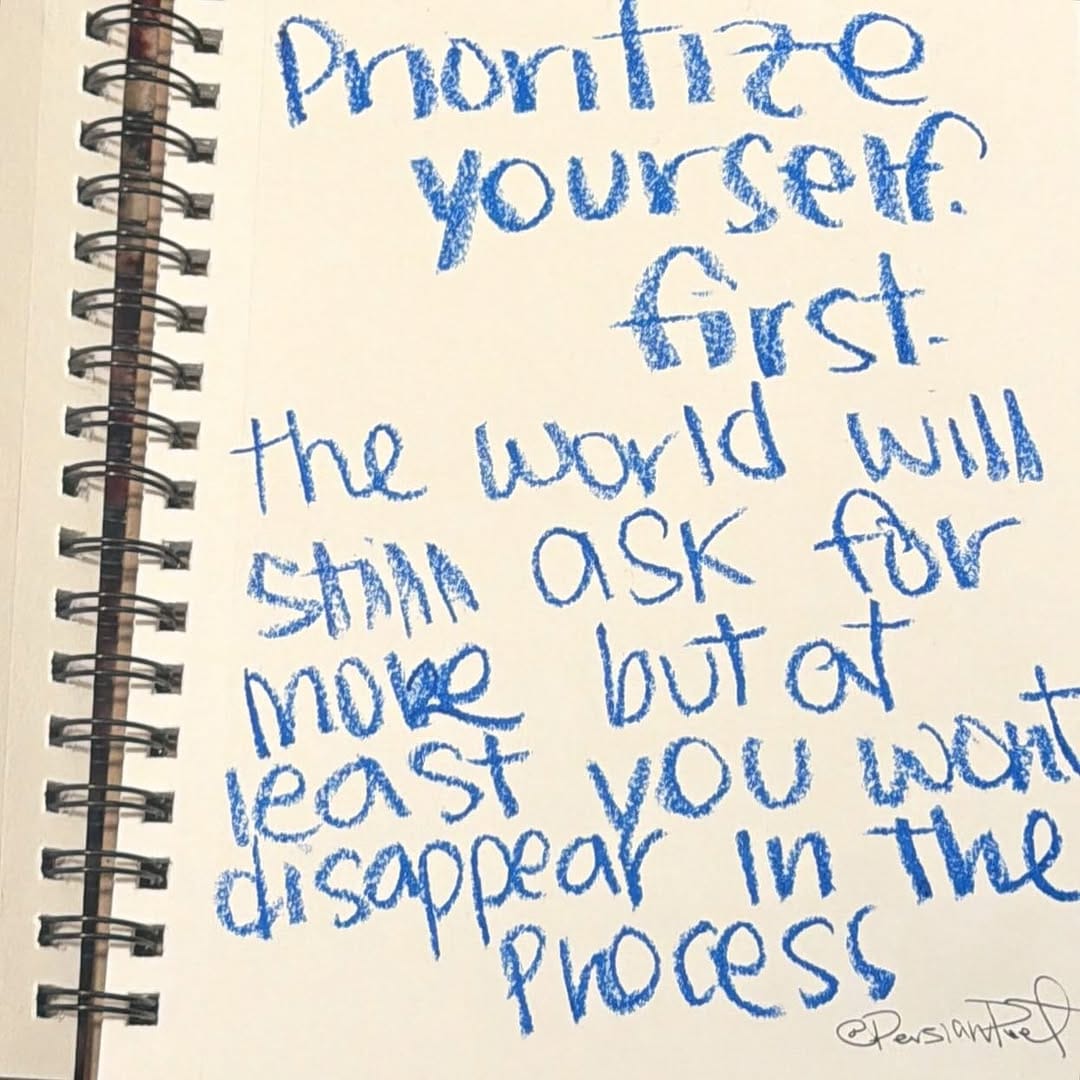 Prioritize
yourself.
first.
the world will
still ask for
more but at
least you wont
disappear in the
process
@PersianPoet